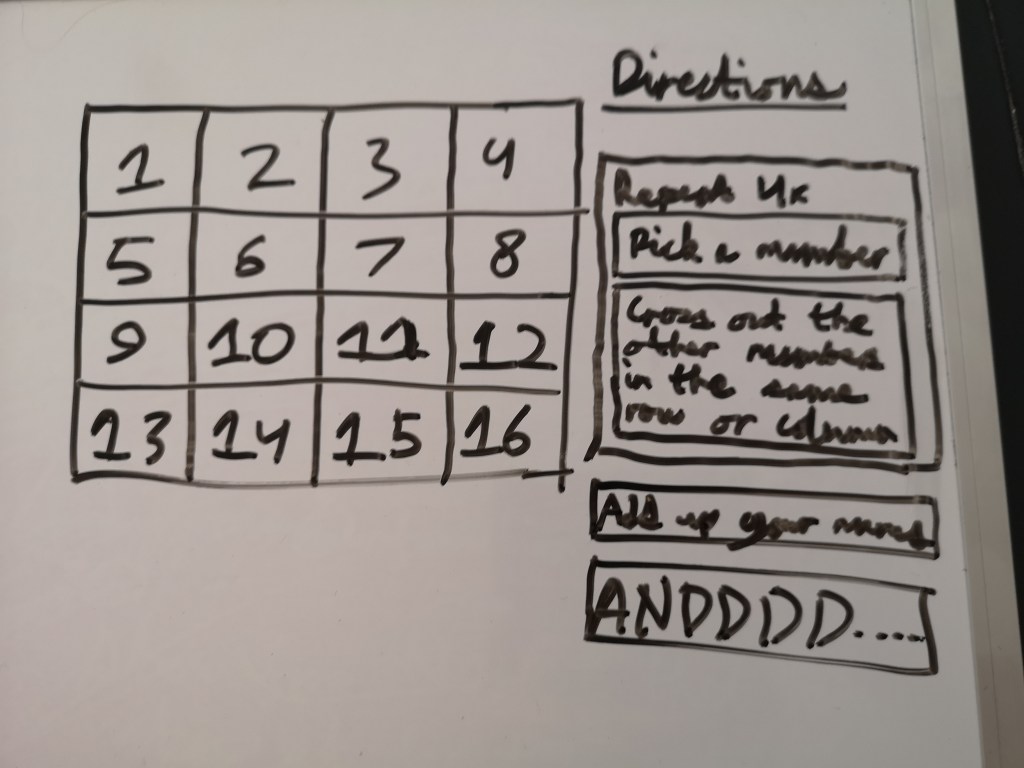 1 2 3 4
5 6 7 8
9 10 11 12
13 14 15 16
Directions
Repeat 4x
Pick a number
Cross out the
other numbers
in the same
row or column
Add up your
ANDDDD.....